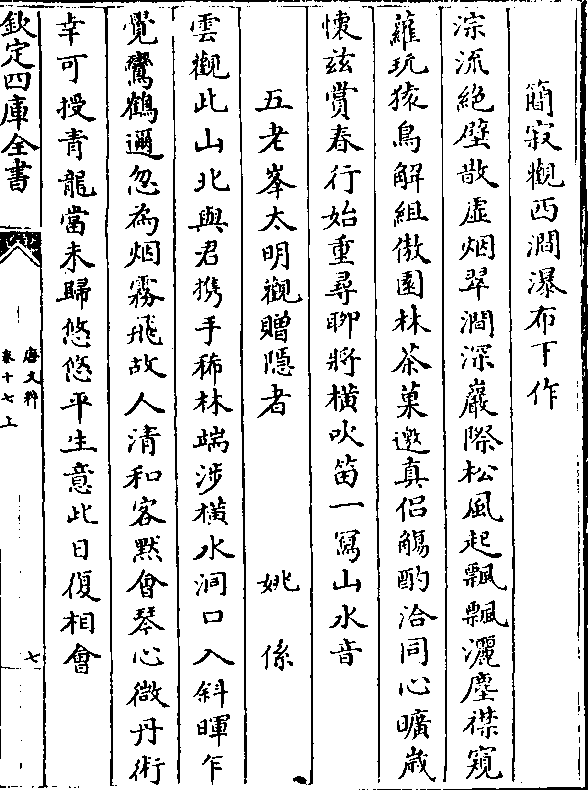 簡寂觀西澗瀑布下作
淙流絕壁散虛烟翠澗深巖際松風起飄飄灑塵襟窺
蘿玩猿鳥解組傲園林茶菓邀真侶觴酌洽同心曠歲
懷兹賞春行始重尋聊將橫吹笛一寫山水音
五老峯太明觀贈隱者 姚係
雲觀此山北與君携手稀林端涉橫水洞口入斜暉乍
覺鸞鶴邇忽為烟霧飛故人清和客黙會琴心微丹術
幸可授青龍當未歸悠悠平生意此日復相㑹
欽定四庫全書
唐文粹
卷十七上
七